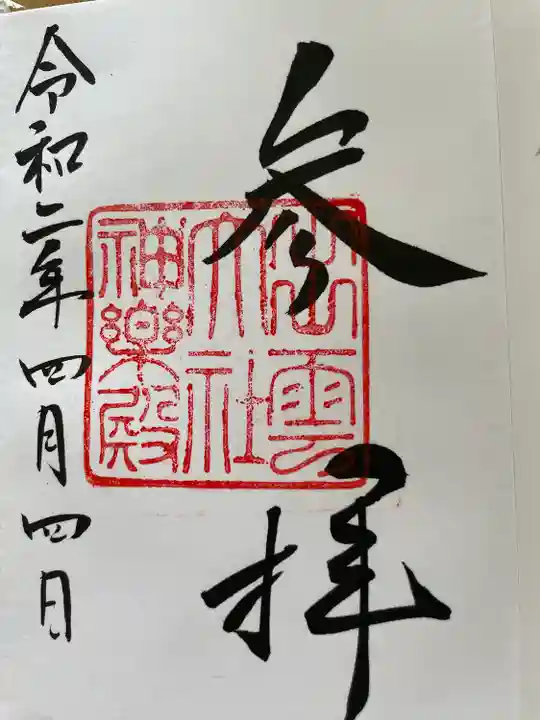 参拝
出雲
大社
神樂殿
令和二年四月四日